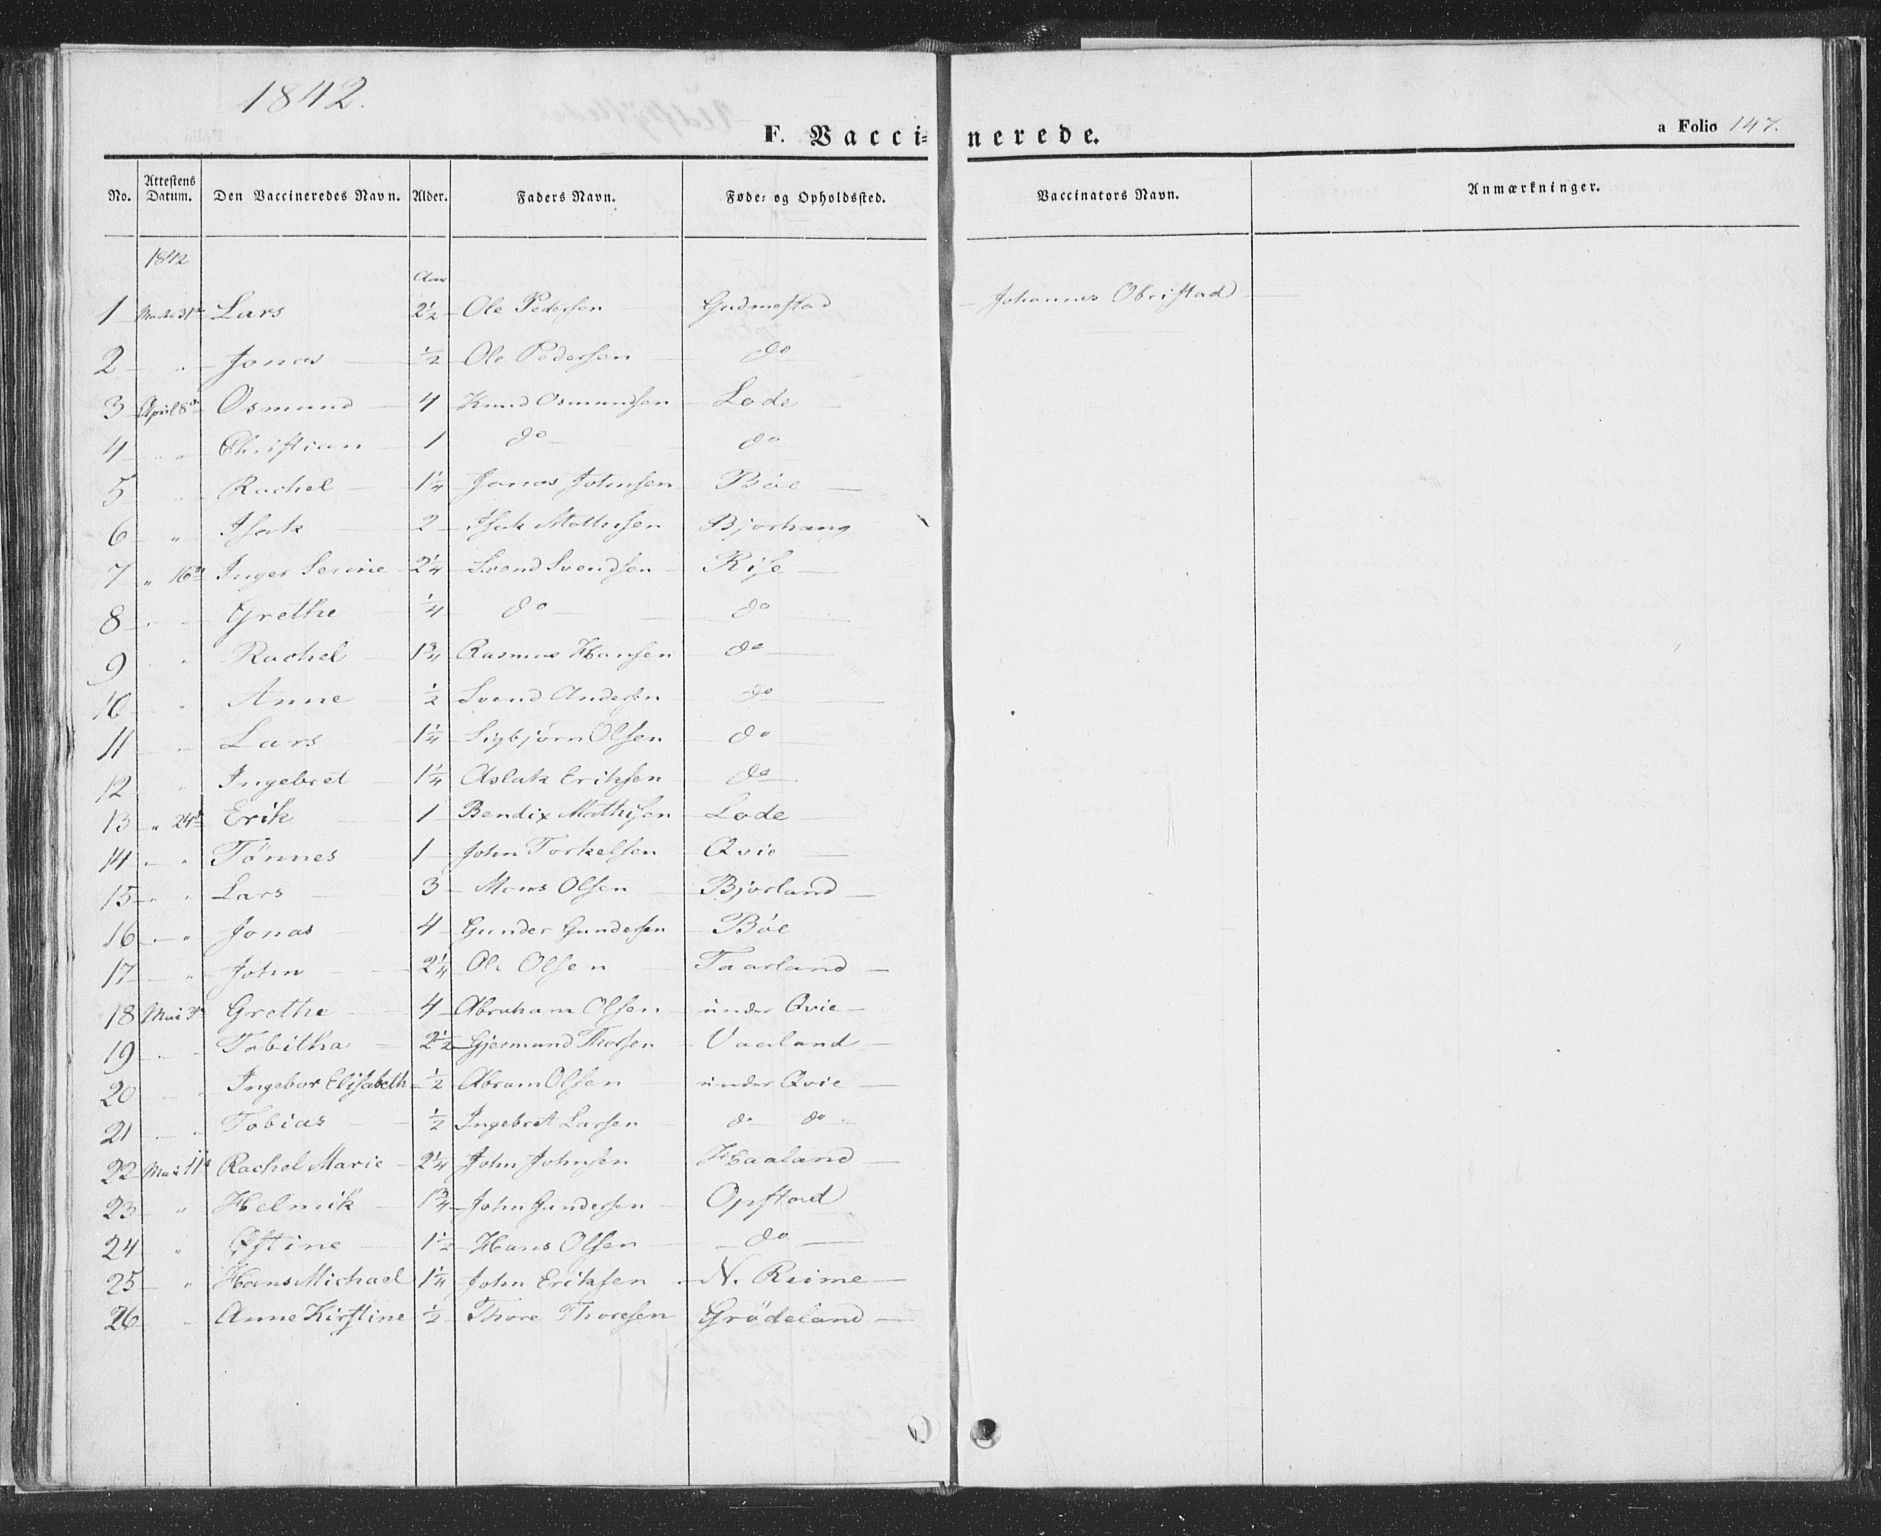 1842.
F. Vaccinerede.
a Folio 147.
No. Attestens Datum. Den Vaccineredes Navn. Alder. Faders Navn. Føde- og Opholdssted. Vaccinators Navn. Anmærkninger.
1842 Aar
1 Marts 31te Lars 2½ Ole Pedersen Gudmestad Johannes Obristad
2 " Jonas ½ Ole Pedersen do
3 April 8de Osmund 4 Knud Osmundsen Lode
4 " " Christian 1 do do
5 " Rachel 1¼ Jonas Johnsen Böe
6 " Isak 2 Isak Mathisen Bjorhaug
7 " 16de Inger Serine 2¼ Svend Svendsen Rise
8 " Grethe ¼ do do
9 " Rachel 1¾ Rasmus Hansen do
10 " Anne ½ Svend Andersen do
11 " Lars 1¼ Sigbjørn Olsen do
12 " Ingebret 1¼ Aslak Eriksen do
13 " 24de Erik 1 Bendix Mathisen Lode
14 " " Tönnes 1 John Torkelsen Qvie
15 " " Lars 3 Mons Olsen Bjorland
16 " " Jonas 4 Gunder Gundersen Böe
17 " John 2¼ Ole Olsen Taarland
18 Mai 3de Grethe 4 Abraham Olsen under Qvie
19 " " Tabitha 2½ Gjermund Thorsen Vaaland
20 " " Ingebor Elisabeth ½ Abram Olsen under Qvie
21 " " Tobias ½ Ingebret Larsen do do
22 Mai 11te Rachel Marie 2¼ John Johnsen Haaland
23 " Helmik 1¾ John Gundersen Opstad
24 " Østine 1½ Hans Olsen do
25 " Hans Michael 1¼ John Eriksen N. Reime
26 " Anne Kirstine ½ Thore Thoresen Grödeland